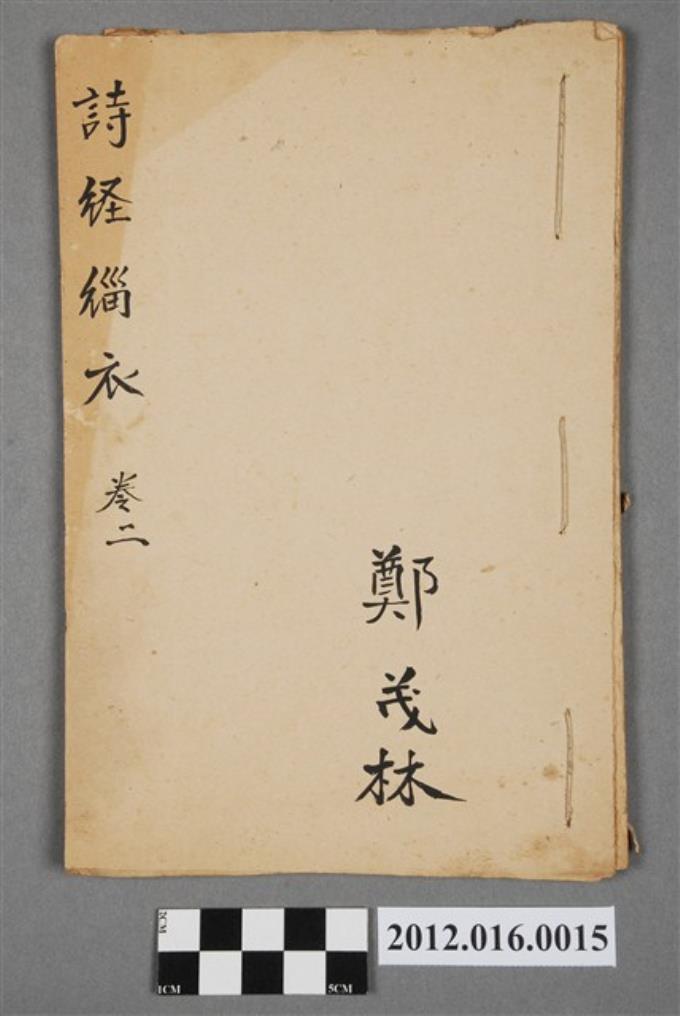 詩経緇衣 卷二
鄭茂林
2CM
1CM
5CM
2012.016.0015